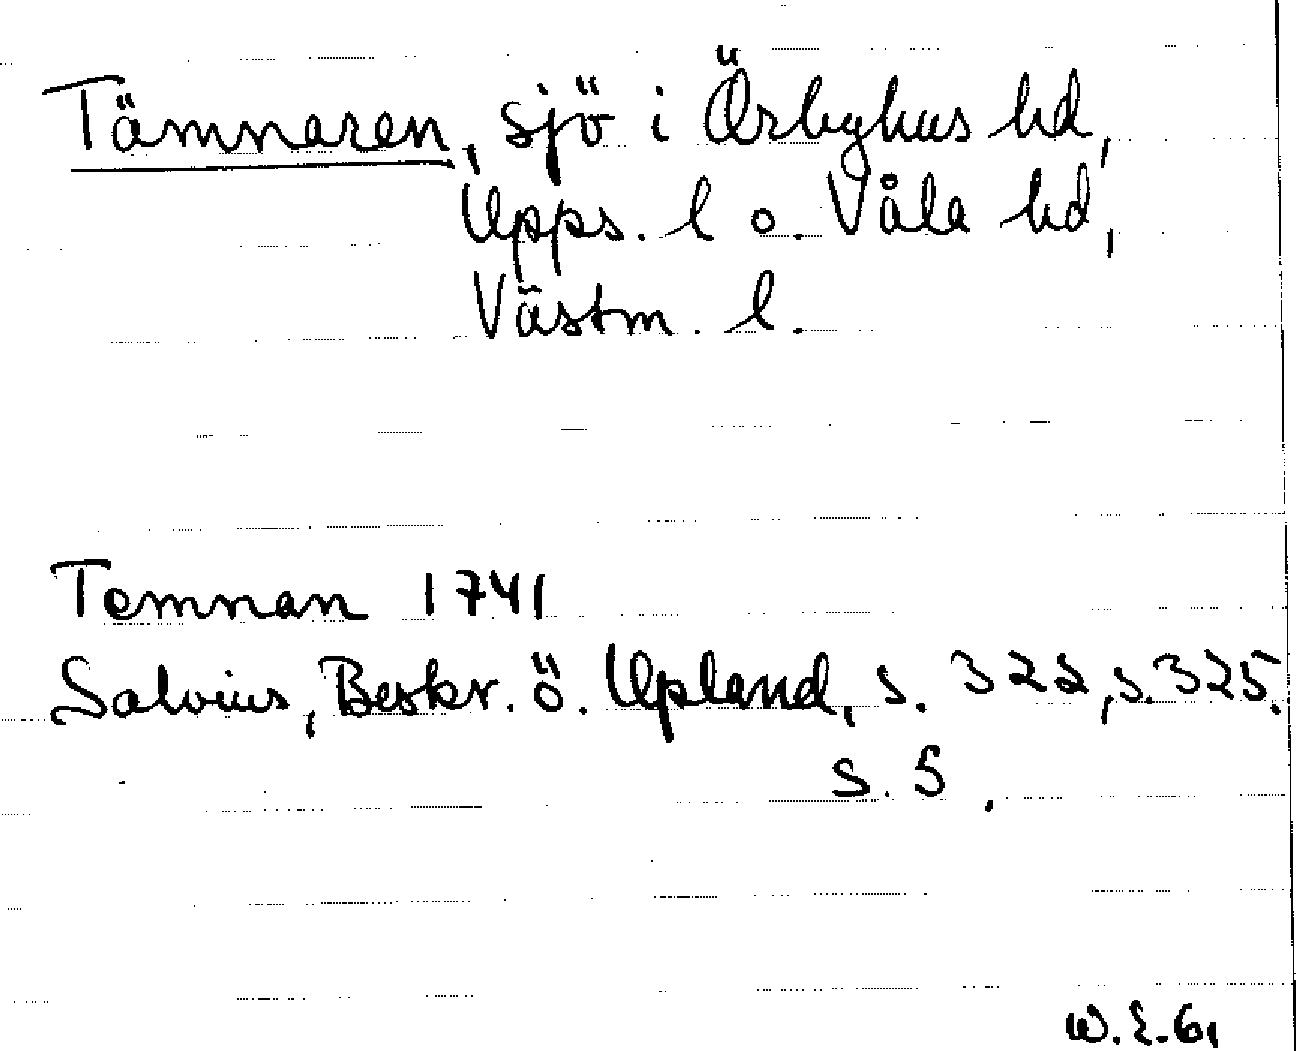 Tämnaren, sjö i Örbyhus hd,
Upps. l o. Våla hd,
Västm. l.
Temnan 1741
Salvius, Beskr. ö. Upland, s. 322, s. 325.
s. 5.
W. E. 61